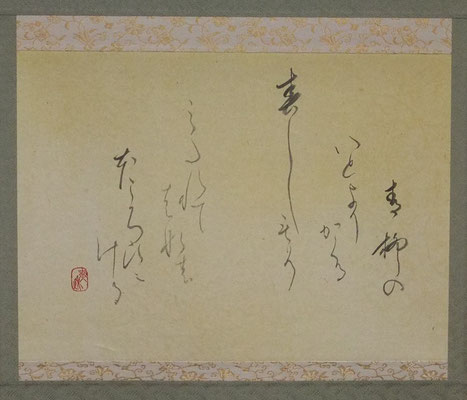 青柳の
いとより
かくる
春しもそ
みたれて
はなの
ほころひに
ける